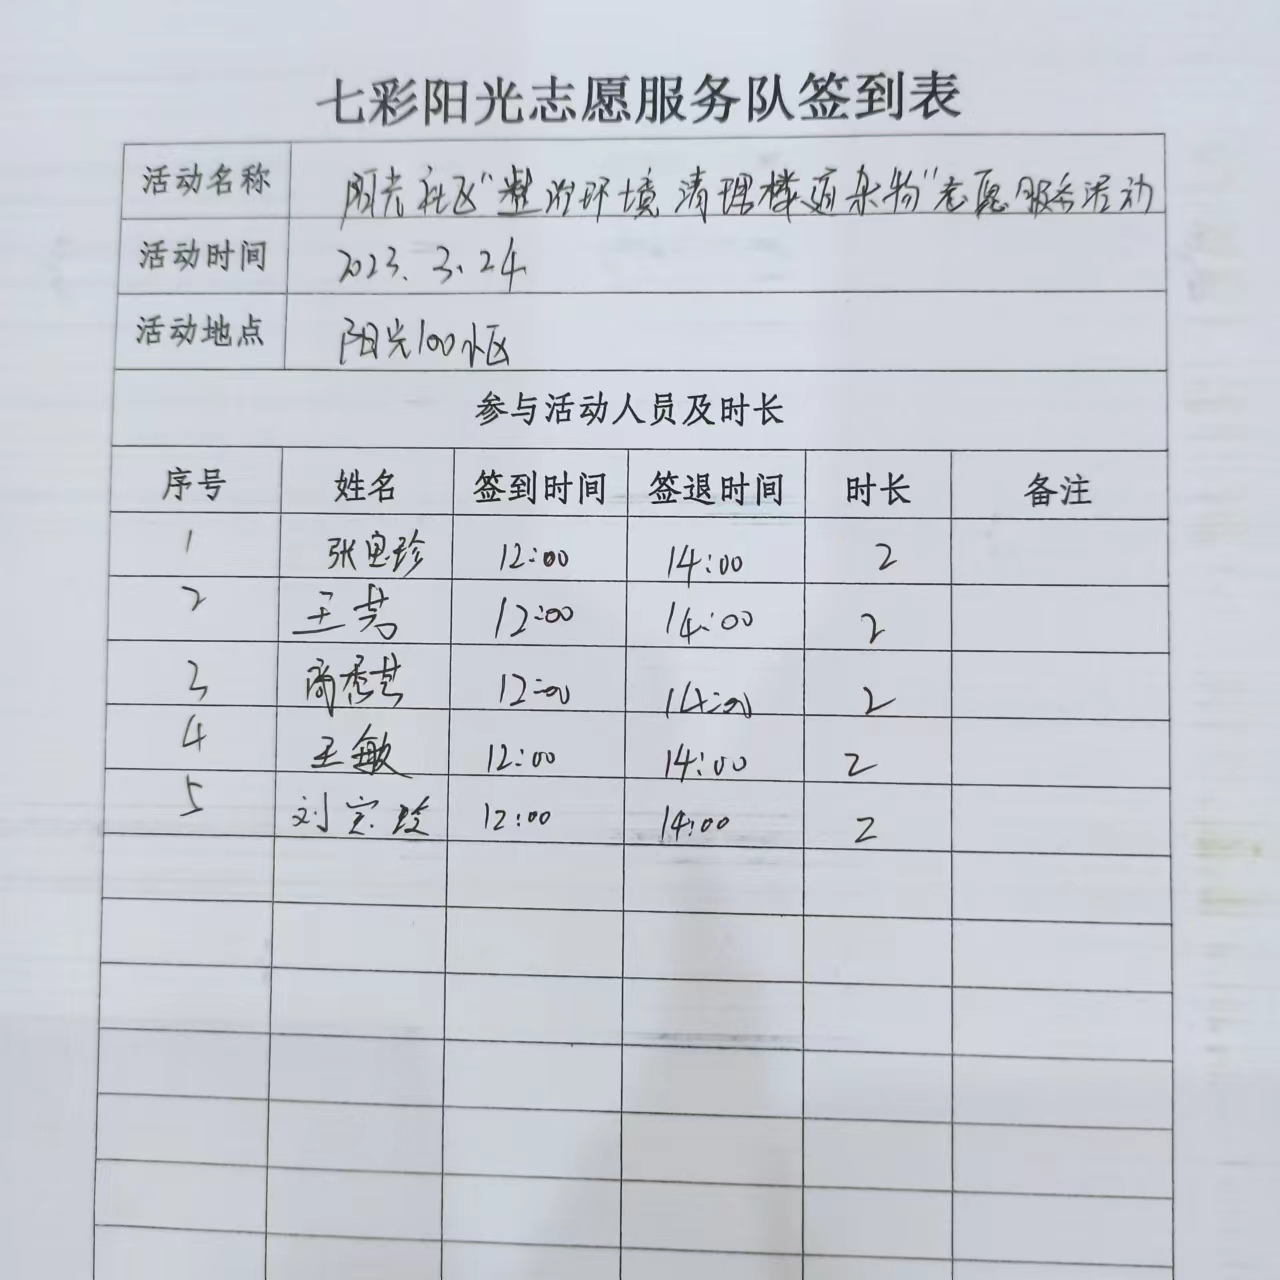 七彩阳光志愿服务队签到表
活动名称 阳光社区“整治环境 清理楼道杂物”志愿服务活动
活动时间 2023.3.24
活动地点 阳光100小区
参与活动人员及时长
序号 姓名 签到时间 签退时间 时长 备注
1 张思珍 12:00 14:00 2
2 王芸 12:00 14:00 2
3 12:00 14:00 2
4 王敏 12:00 14:00 2
5 刘 12:00 14:00 2